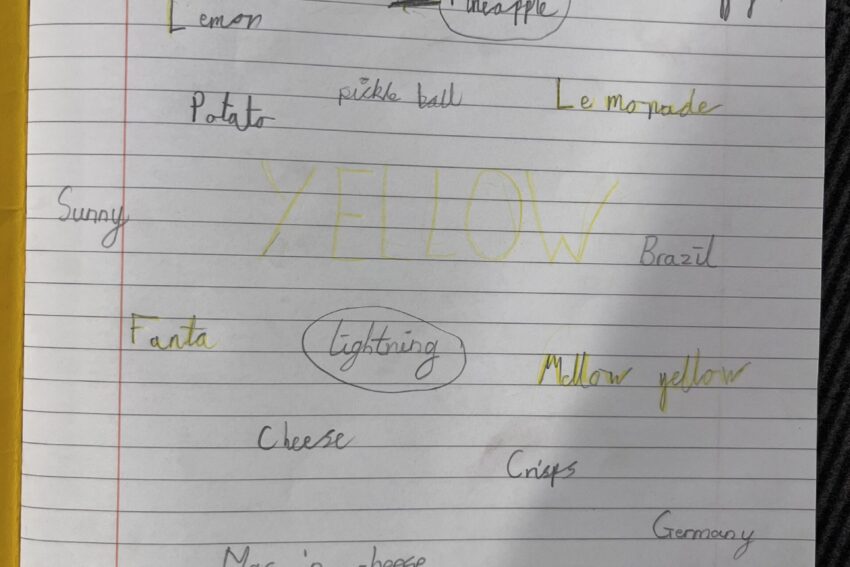 Lemon
Pineapple
Potato
pickle ball
Lemonade
YELLOW
Sunny
Brazil
Fanta
lightning
Mellow yellow
Cheese
Crisps
Germany
Mac 'n cheese